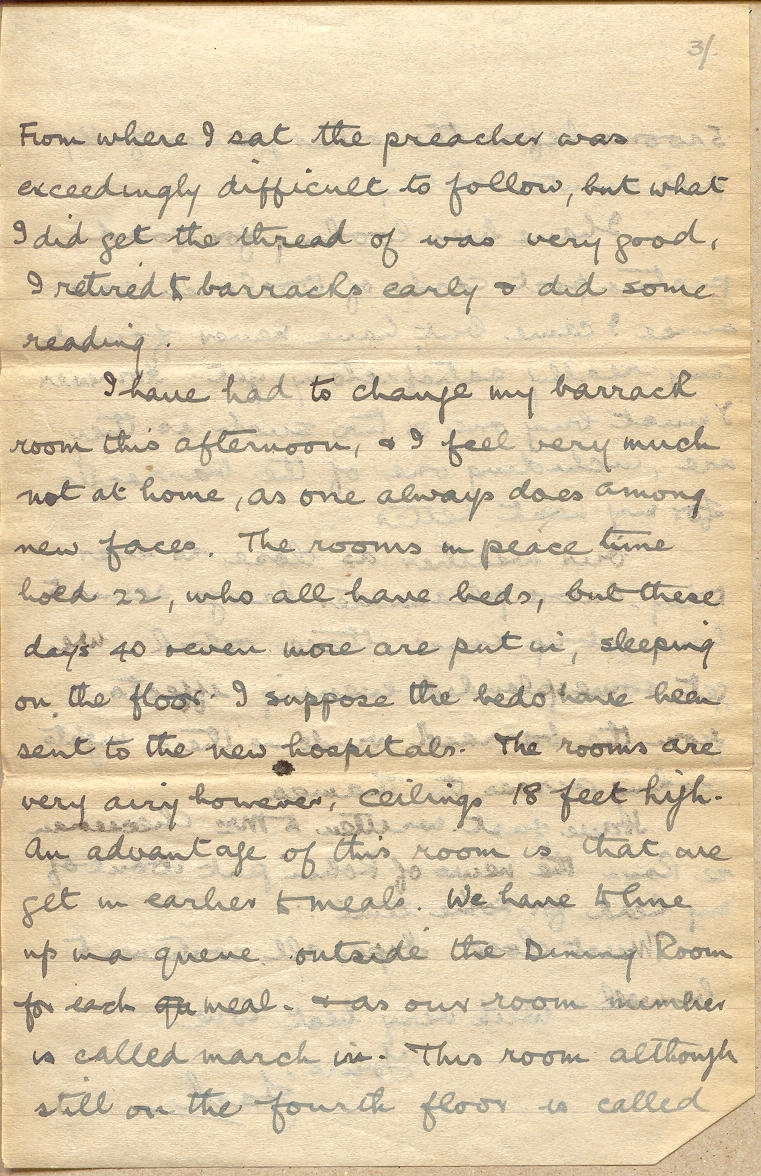 3/.
From where I sat the preacher was
exceedingly difficult to follow, but what
I did get the thread of was very good,
I retired to barracks early & did some
reading.
I have had to change my barrack
room this afternoon, & I feel very much
not at home, as one always does among
new faces. The rooms in peace time
hold 22, who all have beds, but these
days 40 or even more are put in, sleeping
on the floor. I suppose the beds have been
sent to the new hospitals. The rooms are
very airy however, ceilings 18 feet high.
An advantage of this room is that we
get in earlier to meals. We have to line
up in a queue outside the Dining Room
for each meal. & as our room number
is called march in. This room although
still on the fourth floor is called